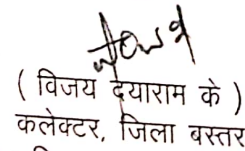 ( विजय दयाराम के )
कलेक्टर, जिला बस्तर